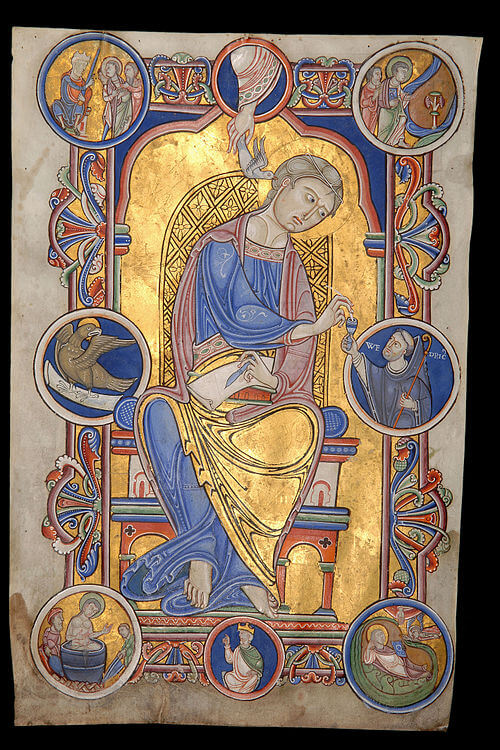 WE DRIC